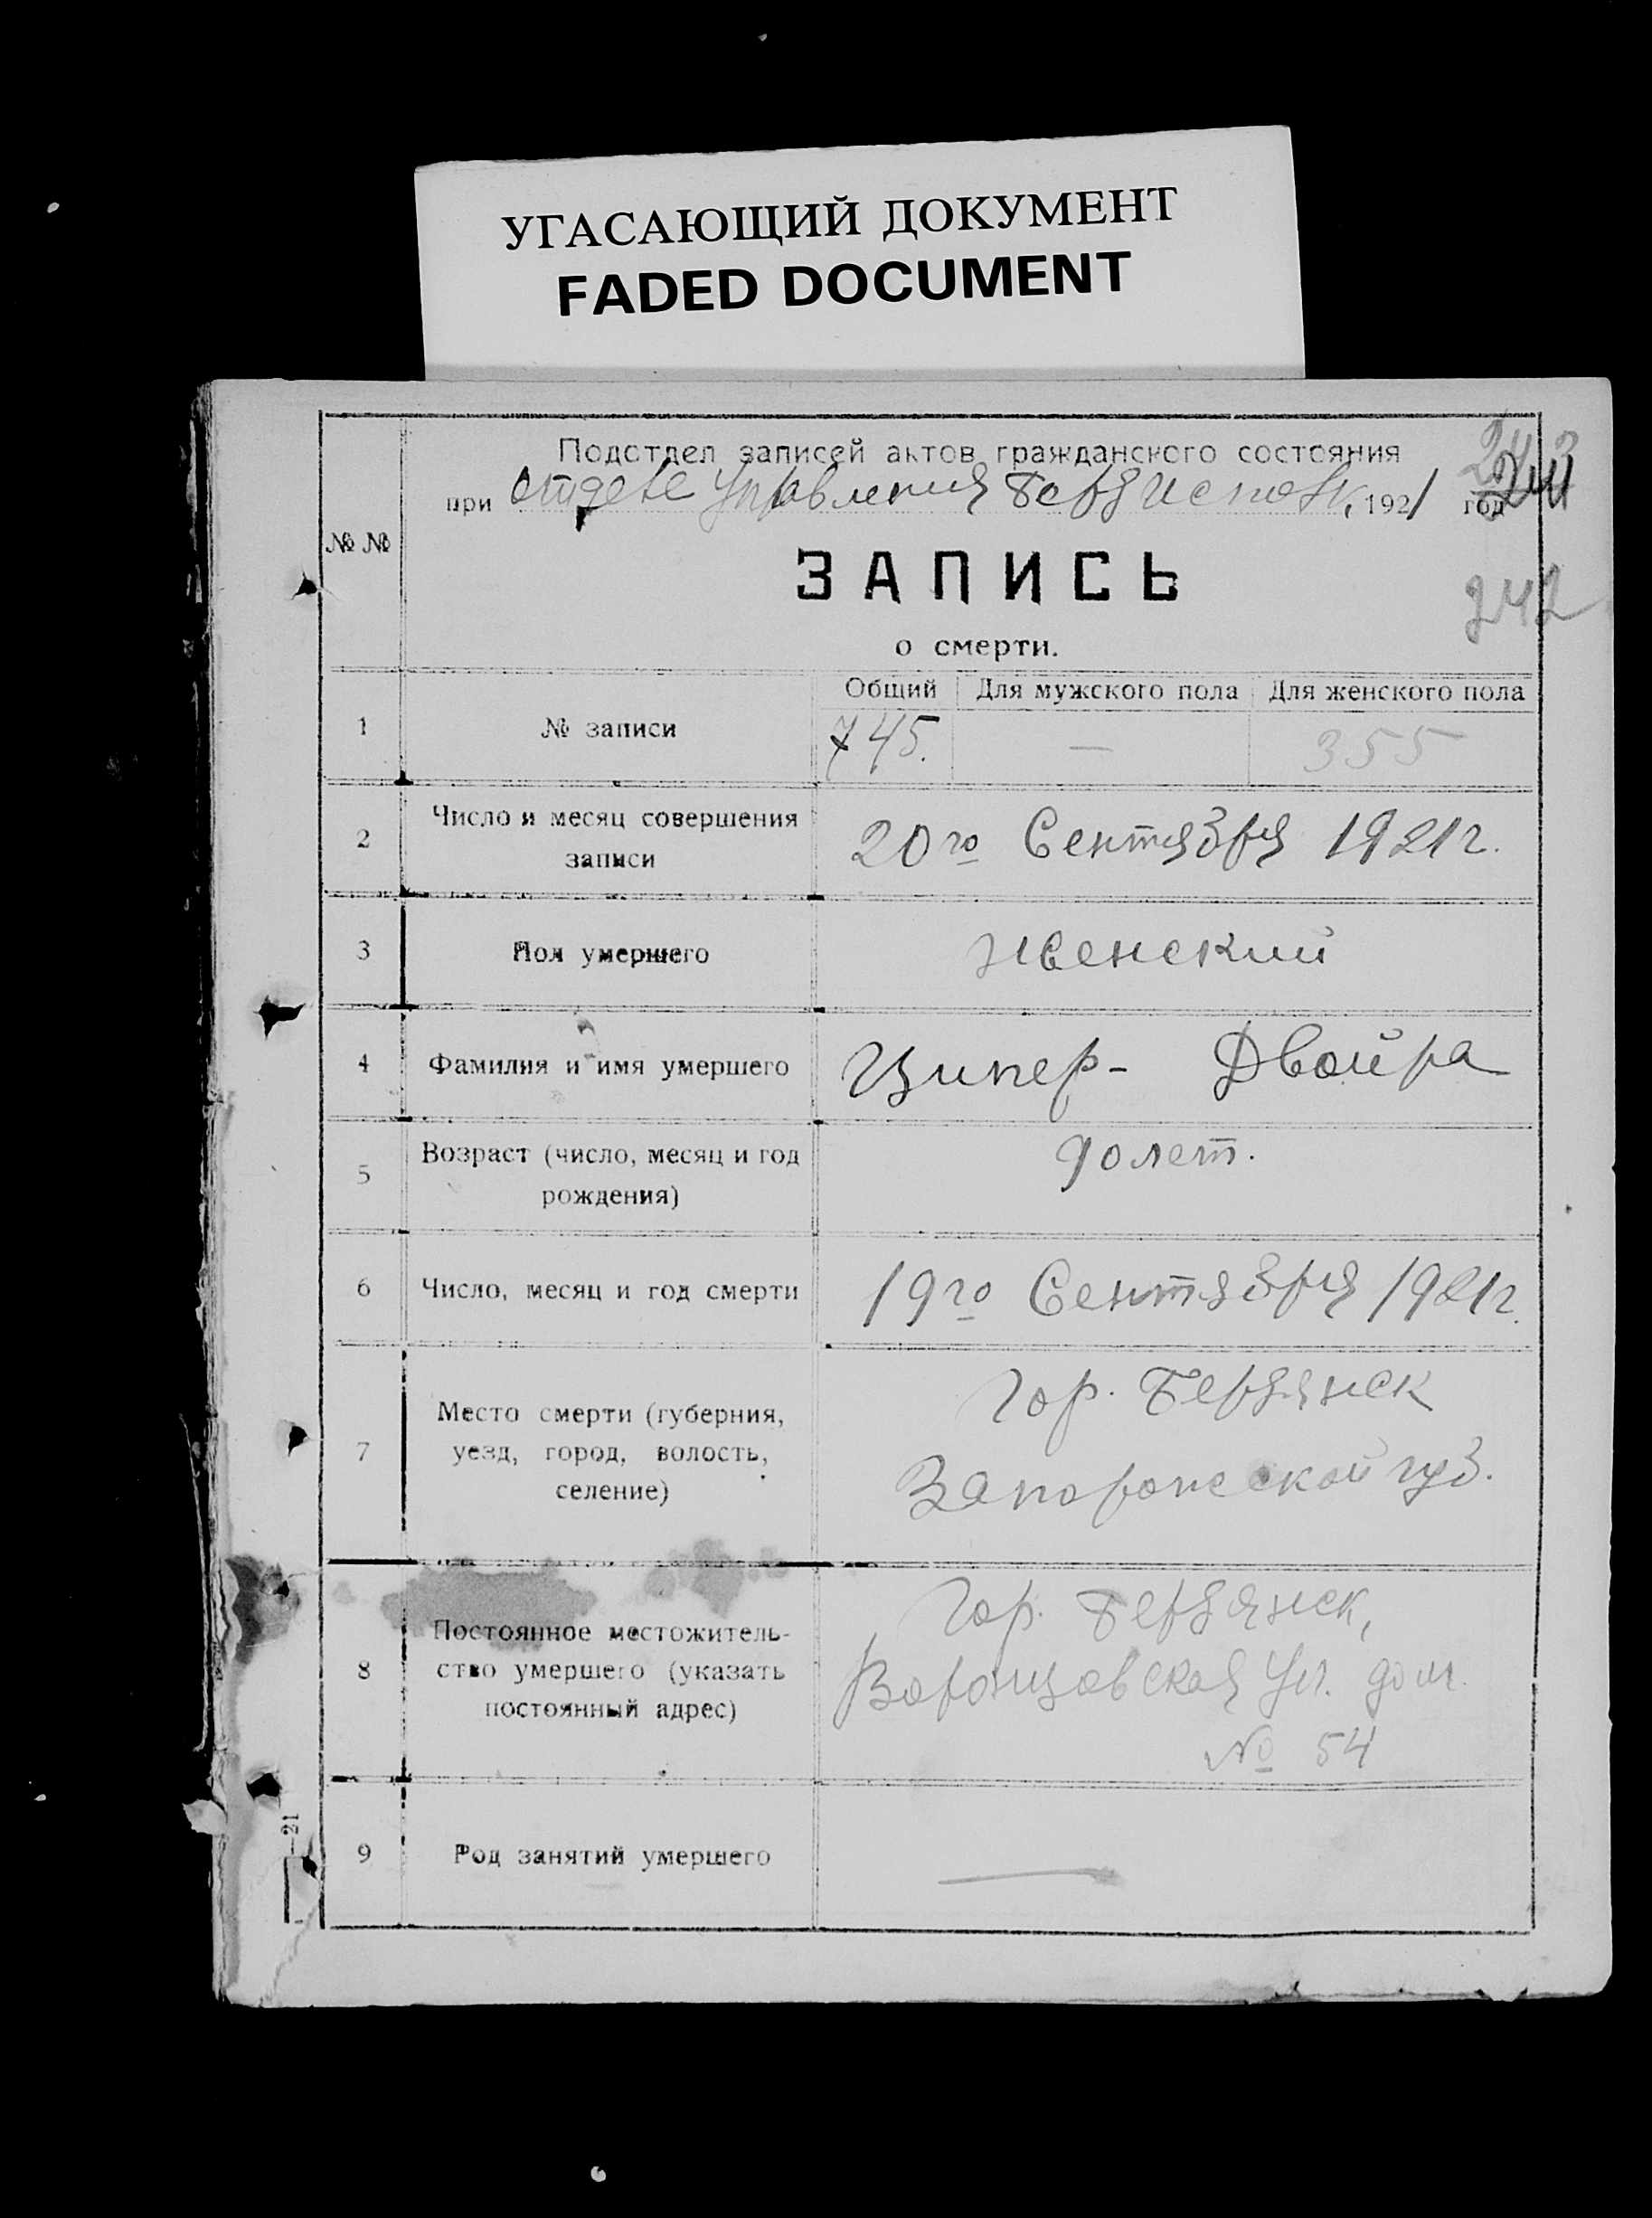 УГАСАЮЩИЙ ДОКУМЕНТ
FADED DOCUMENT
Подотдел записей актов гражданского состояния
при отделе Управления 1921 год
№ №
ЗАПИСЬ
242
о смерти.
Общий Для мужского пола Для женского пола
1 № записи 745. — 355
2 Число и месяц совершения
записи
20го Сентября 1921г.
3 Пол умершего Женский
4 Фамилия и имя умершего Ципер- Двойра
5 Возраст (число, месяц и год
рождения)
90 лет.
6 Число, месяц и год смерти 19го Сентября 1921г.
7 Место смерти (губерния,
уезд, город, волость,
селение)
Гор. Бердянск
Запорожской губ.
8 Постоянное местожитель-
ство умершего (указать
постоянный адрес)
Гор. Бердянск,
Воронцовская ул. дом.
№ 54
9 Род занятий умершего —